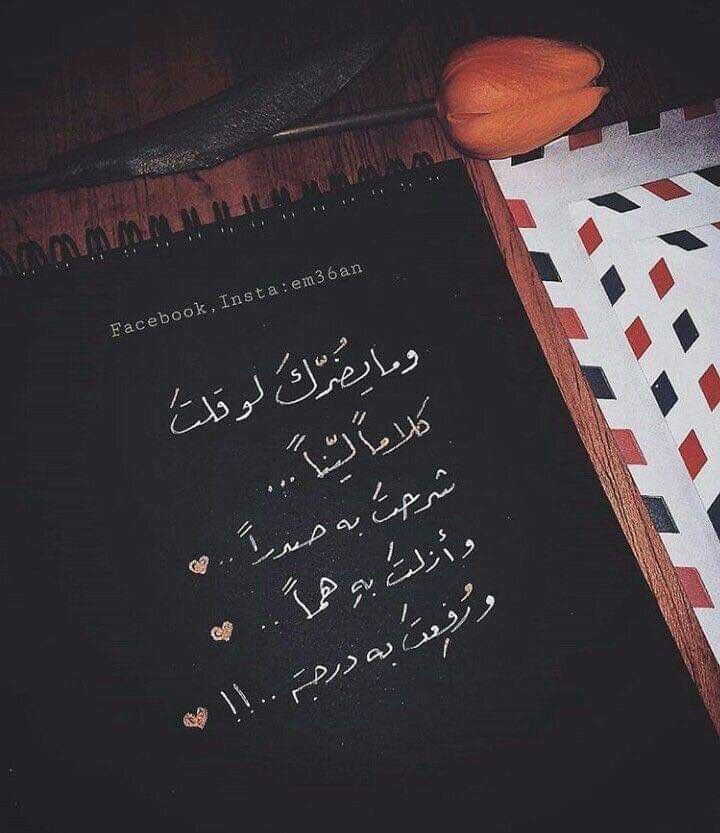 Facebook,Insta:em36an
وما يضُرّكَ لو قلتَ
كلاماً ليّناً ...
شرحتَ به صدراً ..
و أزلتَ بهِ هماً ..
و رُفِعتَ به درجة ..!!